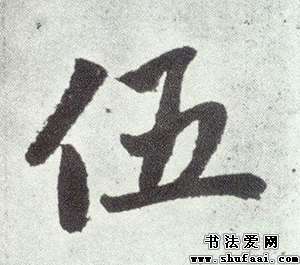 伍
书法爱网
www.shufaai.com